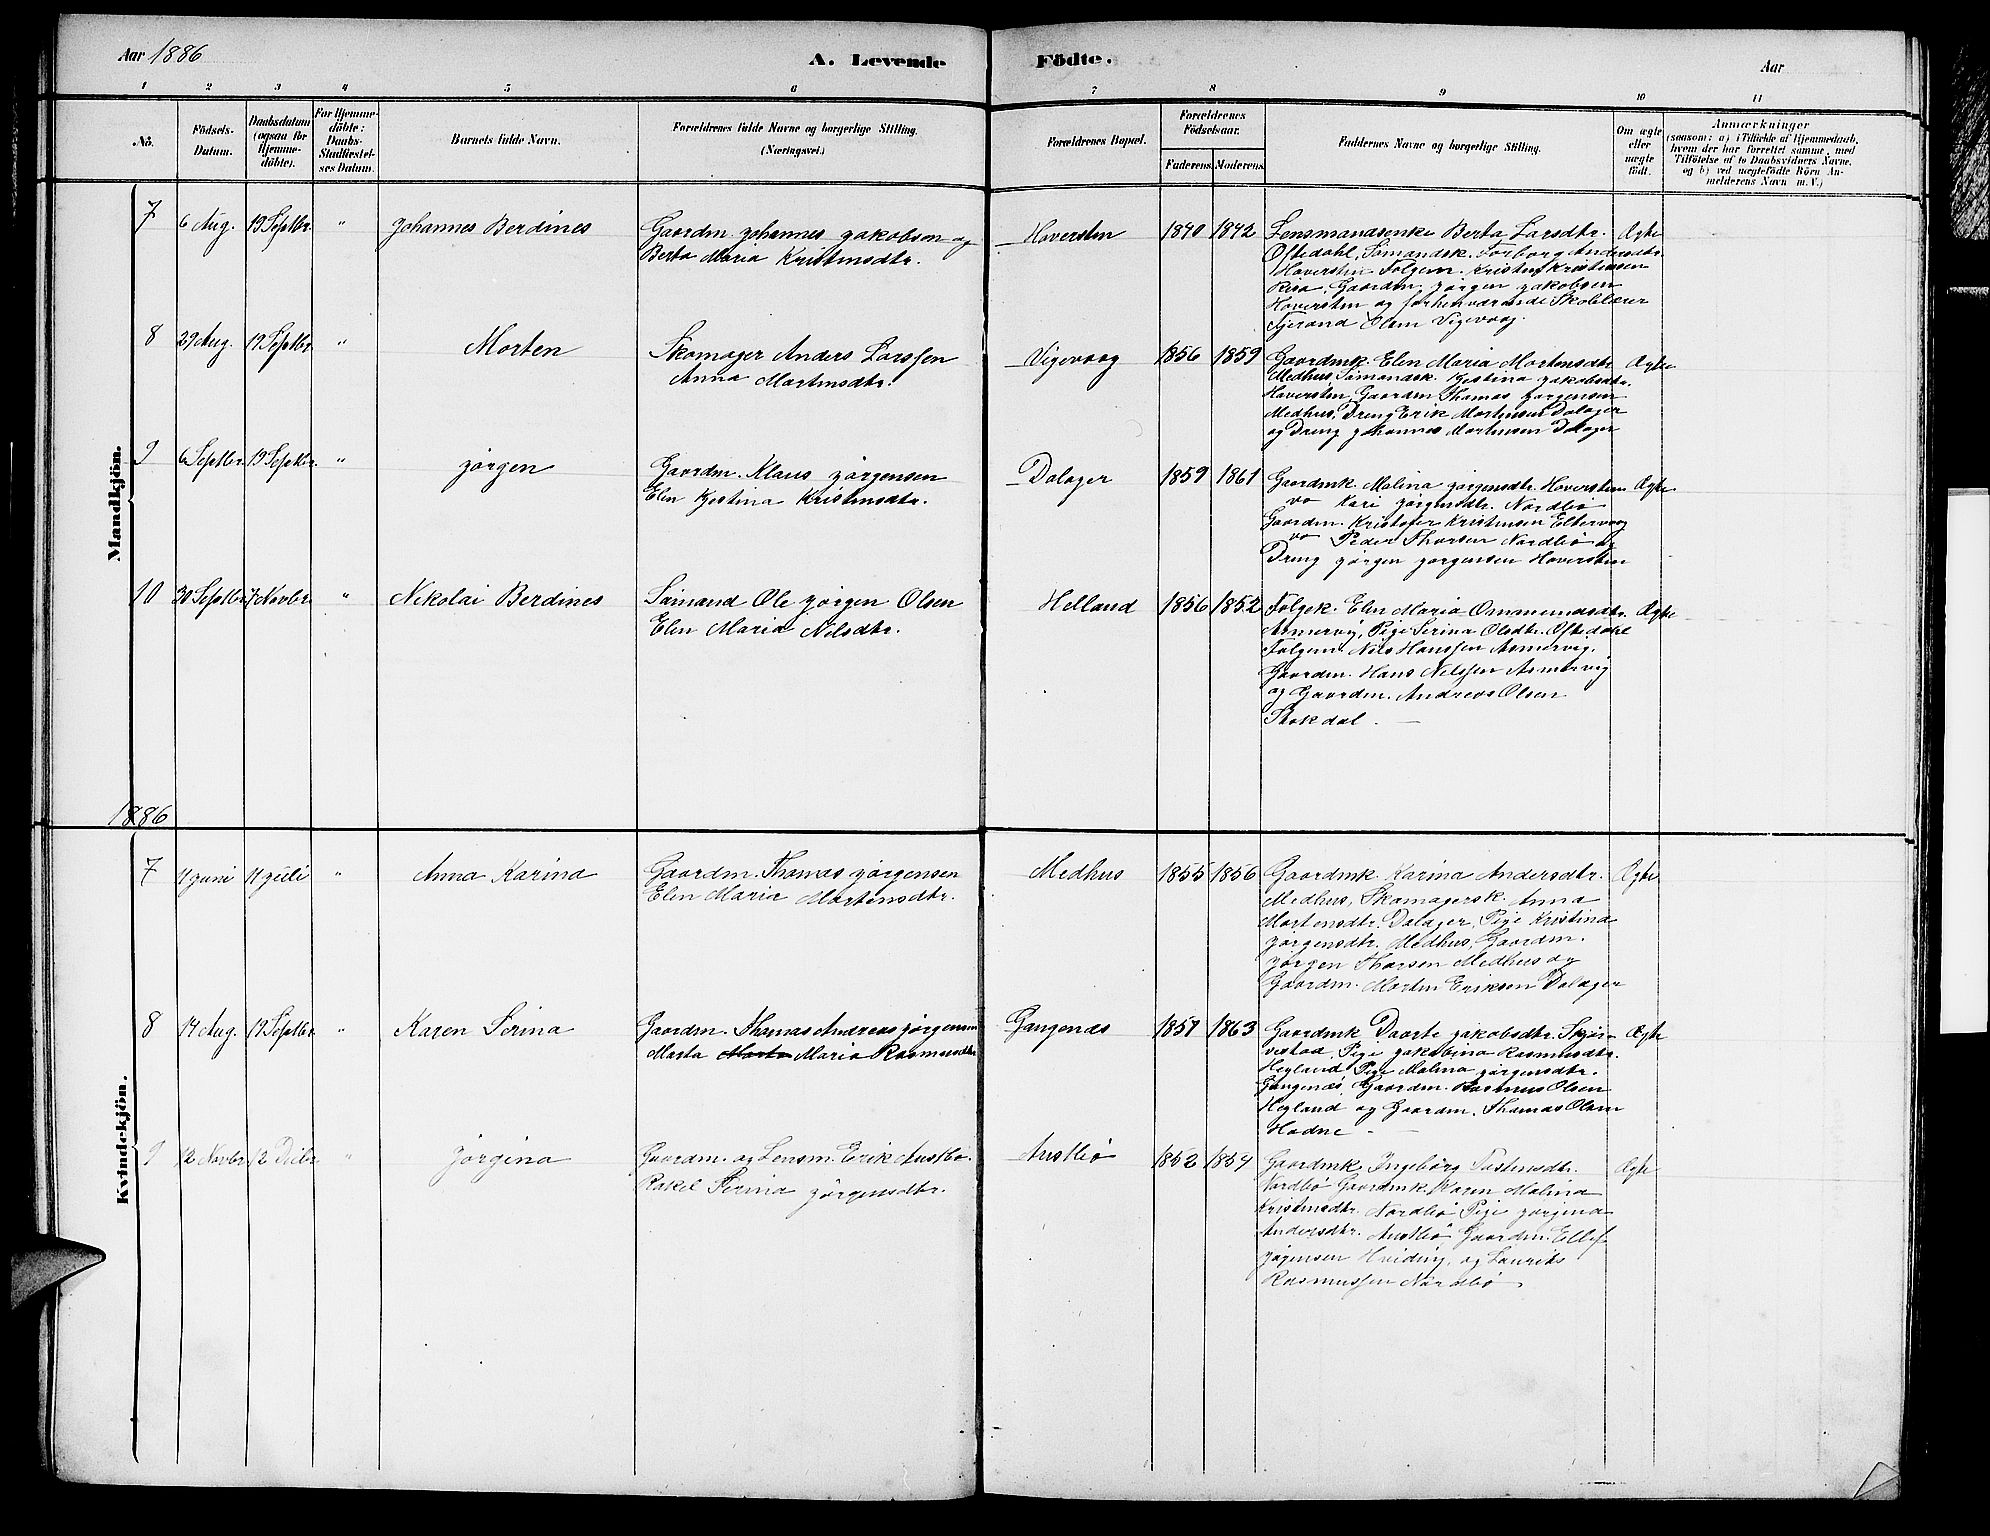 Aar 1886 A. Levende Födte. Aar
1 2 3 4 5 6 7 8 9 10 11
No. Födsels-Datum. Daabsdatum (ogsaa for Hjemme-döbte). For Hjemme-döbte: Daabs-Stadfæstel-ses Datum. Barnets fulde Navn. Forældrenes fulde Navne og borgerlige Stilling. (Næringsvei.) Forældrenes Bopæl. Forældrenes Födselsaar. Faderens. Moderens. Faddernes Navne og borgerlige Stilling. Om ægte eller uægte födt. Anmærkninger (saasom: a) i Tilfælde af Hjemmedaab, hvem der har forrettet samme, med Tilföielse af to Daabsvidners Navne, og b) ved uægtefödte Börn An-melderens Navn m. V.)
Mandkjön.
7 6 Aug. 19 Septbr. " Johannes Berdines Gaardm. Johannes Jakobsen og Hoversten 1840 1842 Lensmandsenke Berta Larsdtr. Ægte
Berta Maria Kristensdtr. Oftedahl, Sömandsk. Torborg Andersdtr.
Hoversten Folgem. Kristen Kristensen
Risa, Gaardm. Jörgen Jakobsen
Hoversten og forhenværende Skolelærer
Tjerand Olsen Vigevaag.
8 29 Aug. 19 Septbr. " Morten Skomager Anders Larssen Vigevaag 1856 1859 Gaardmk. Elen Maria Mortensdtr. Ægte
Anna Mortensdtr. Medhus, Sömandsk. Kjestina Jakobsdtr.
Hoversten, Gaardm. Thomas Jörgensen
Medhus, Dreng Erik Mortensen Dalager
og Dreng Johannes Mortensen Dalager
9 6 Septbr. 19 Septbr. " Jörgen Gaardm. Klaus Jörgensen Dalager 1859 1861 Gaardmk. Malina Jörgensdtr. Hoversten Ægte
Elen Kjestina Kristensdtr. Kari Jörgensdtr. Nordbö
Gaardm. Kristofer Kristensen Eltervaag
Peder Thorsen Nordbö og
Dreng Jörgen Jörgensen Hoversten
10 30 Septbr. 7 Novbr. " Nikolai Berdines Sömand Ole Jörgen Olsen Helland 1856 1852 Folgek. Elen Maria Ommundsdtr. Ægte
Elen Maria Nilsdtr. Asmervig, Pige Serina Olsdtr. Oftedahl
Folgem. Nils Hanssen Asmervig,
Gaardm. Hans Nilssen Asmervig
og Gaardm. Andreas Olsen
Stokdal.
1886
Kvindekjön.
7 4 Juni 4 Juli " Anna Karina Gaardm. Thomas Jörgensen Medhus 1855 1856 Gaardmk Karina Andersdtr. Ægte
Elen Maria Mortensdtr. Medhus, Skomagersk. Anna
Mortensdtr. Dalager, Pige Kristina
Jörgensdtr. Medhus, Gaardm.
Jörgen Thorsen Medhus og
Gaardm. Morten Eriksen Dalager
8 14 Aug. 19 Septbr. " Karen Serina Gaardm. Thomas Andreas Jörgensen Gangenæs 1857 1863 Gaardmk Daarte Jakobsdtr. Skjör- Ægte
Marta Marta Maria Rasmusdtr. vestad, Pige Jakobina Rasmusdtr.
Hegland, Pige Malina Jörgensdtr.
Gangenæs, Gaardm. Rasmus Olsen
Hegland og Gaardm. Thomas Olsen
Hodne
9 12 Novbr. 12 Dcbr. " Jörgina Gaardm. og Lensm. Erik Austbö Austbö 1852 1854 Gaardmk Ingeborg Tostensdtr. Ægte
Rakel Serina Jörgensdtr. Nordbö Gaardmk. Karen Malina
Kristensdtr. Nordbö Pige Jörgina
Andersdtr. Austbö, Gaardm. Ellef
Jörgensen Hviding, og Laurits
Rasmussen Nordbö